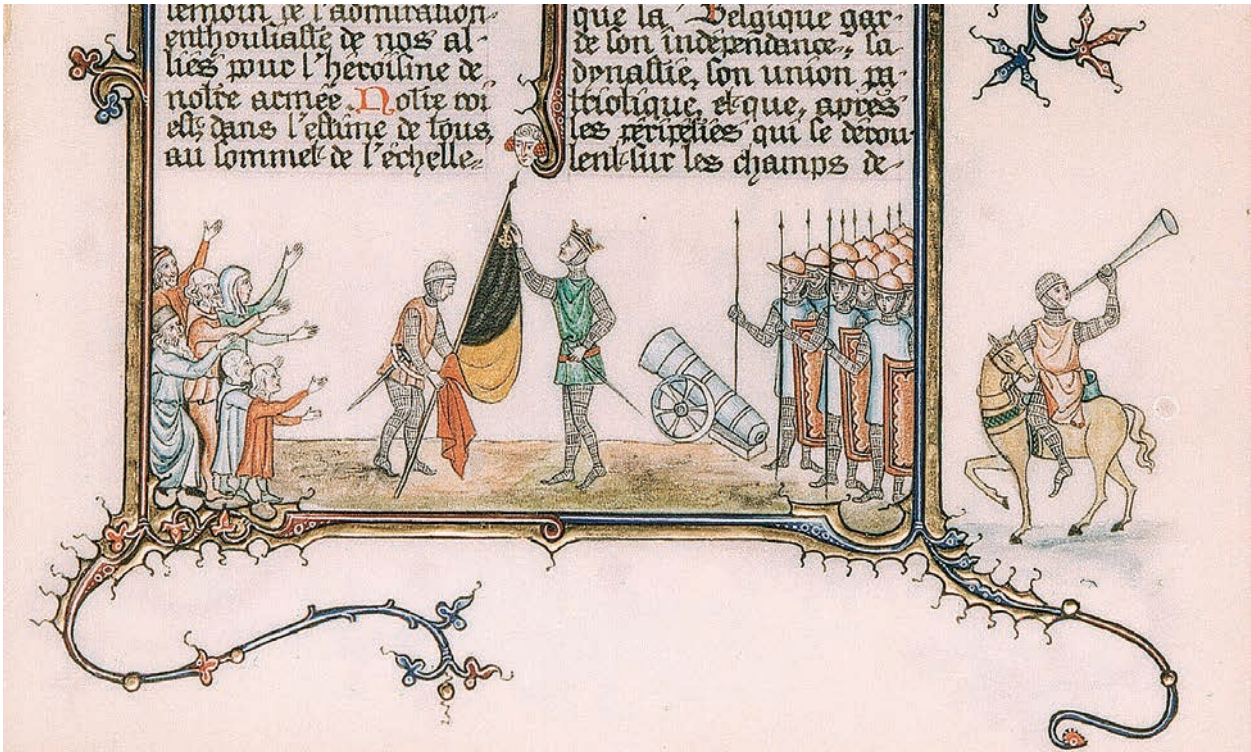 témoin de l'admiration
enthousiaste de nos al-
liés pour l'héroïsme de
notre armée. Notre roi
est, dans l'estime de tous,
au sommet de l'échelle
que la Belgique gar-
de son indépendance, sa
dynastie, son union pa-
triotique, et que, après
les péripéties qui se dérou-
lent sur les champs de